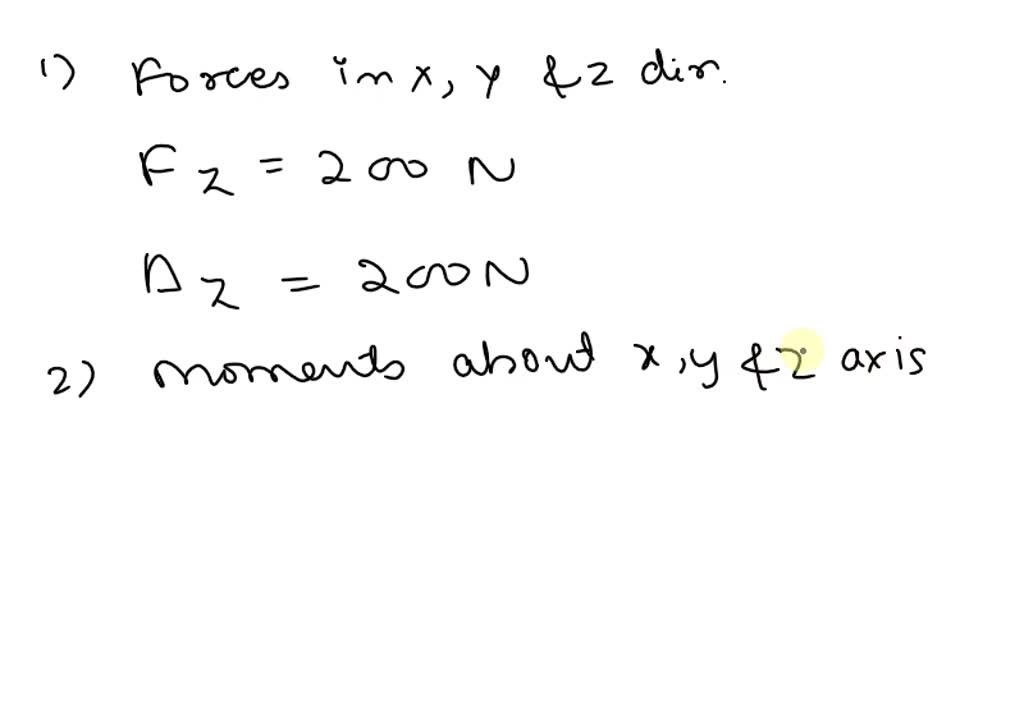 1) Forces in x, y & z dir.
Fz = 200 N
Az = 200 N
2) moments about x, y & z axis